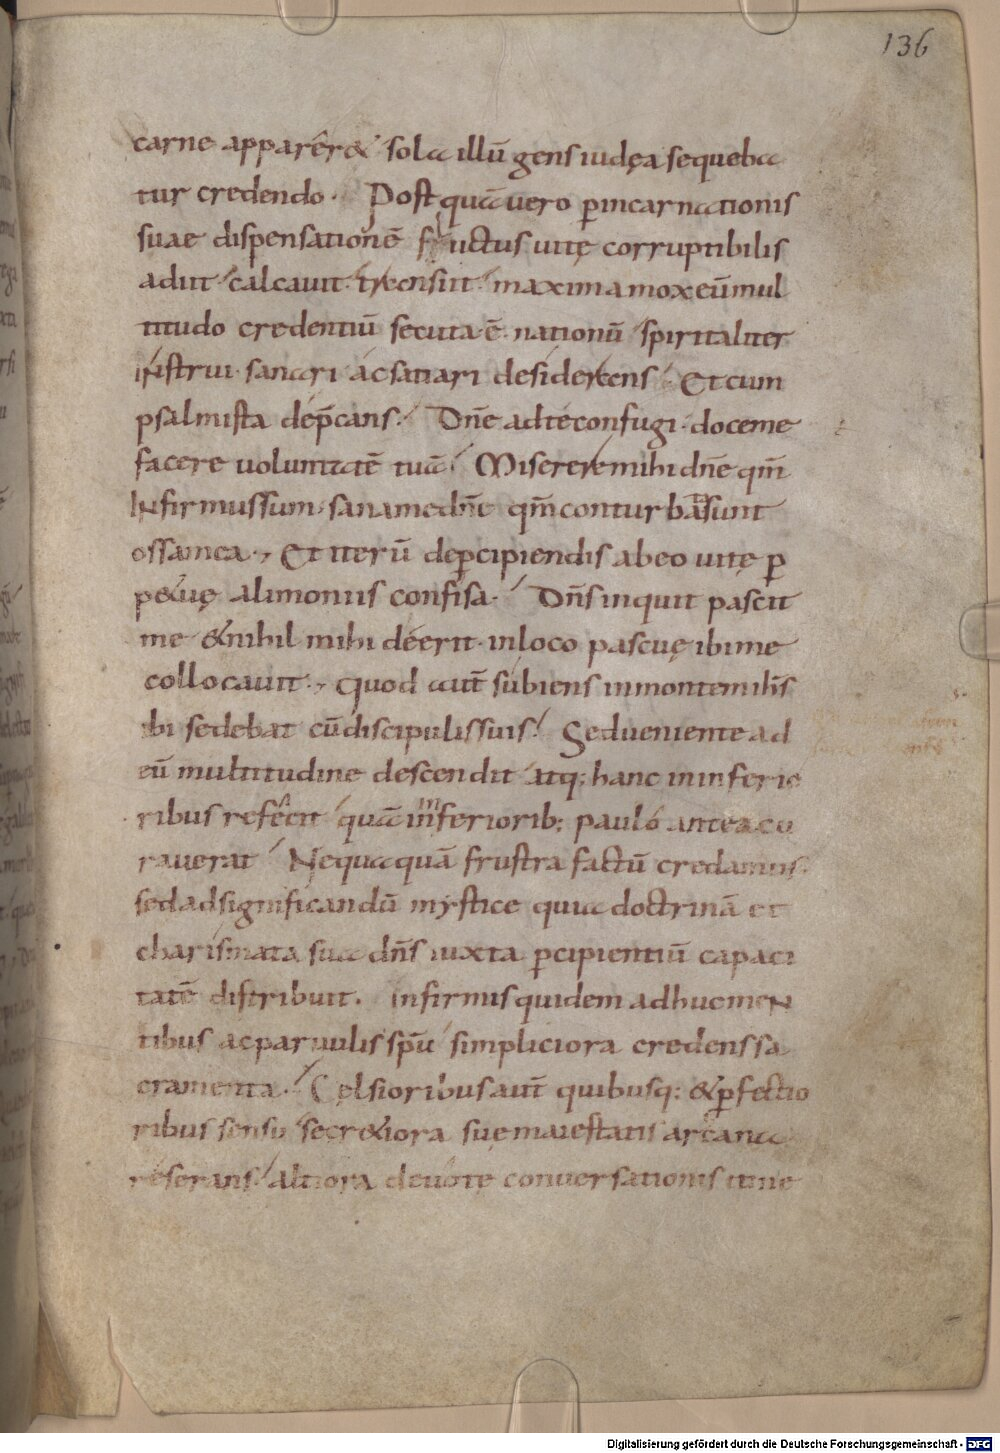 136
carne apparer& sola illū gens iudęa sequeba
tur credendo. Postquā uero ꝑ incarnationis
suae dispensationē fluctus uitę corruptibilis
adiit calcauit transiit maxima mox eū mul
titudo credentiū secuta ē nationū spiritaliter
instrui sanari ac satiari desiderans. Et cum
psalmista dep̄cans. Dn̄e ad te confugi doce me
facere uoluntatē tuā. Miserere mihi dn̄e qm̄
Infirmus sum sana me dn̄e qm̄ conturbata sunt
ossa mea. Et iterū dep̄cipiendis ab eo uitę ꝑ
p&uę alimoniis confisa. Dn̄s inquit pascit
me & nihil mihi deerit in loco pascuę ibi me
collocauit. quod aut̄ subiens in montem ih̄s
ibi sedebat cū discipulis suis. Sed ueniente ad
eū multitudine descendit atq; hanc in inferio
ribus refecit quā in inferiorib; paulo antea cu
rauerat Nequaquā frustra factū credamus.
sed ad significandū mystice quia doctrinā et
charismata sua dn̄s iuxta p̄cipientiū capaci
tatē distribuit. Infirmis quidem adhuc men
tibus ac paruulis sp̄u simpliciora credens sa
cramenta. Celsioribus aut̄ quibusq; & ꝑfectio
ribus sensu secr&iora suę maiestatis arcana
reserans altiora deuotę conuersationis itine
Digitalisierung gefördert durch die Deutsche Forschungsgemeinschaft - DFG